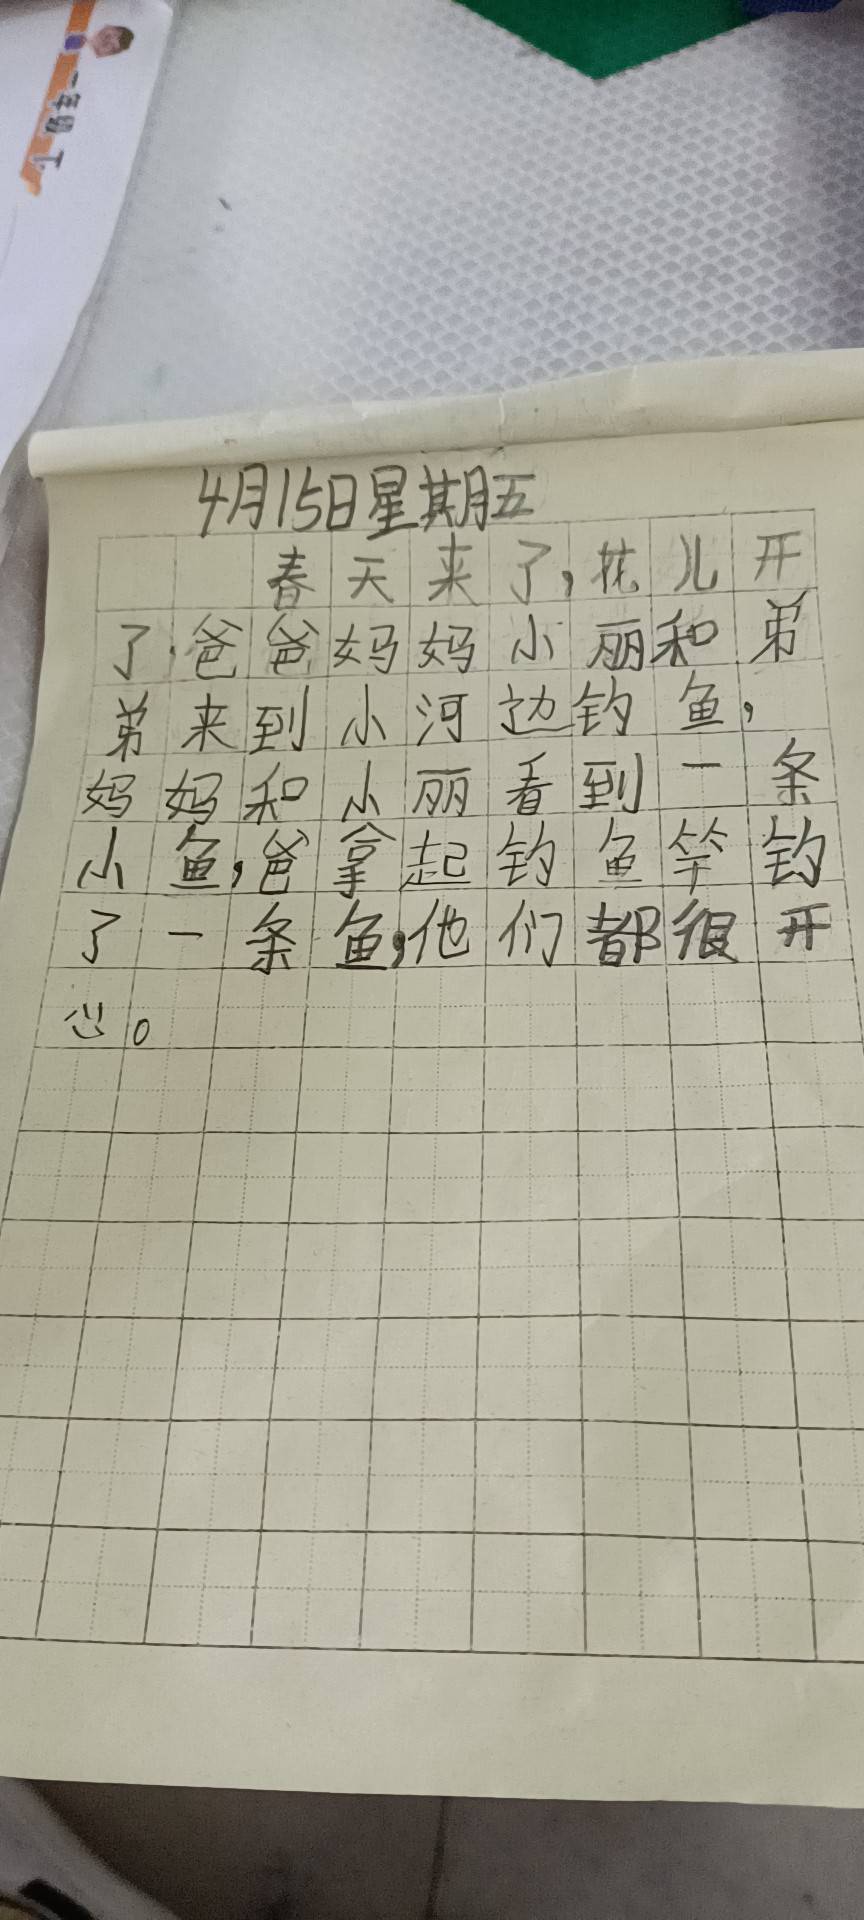 一年级 下
4月15日星期五
春天来了,花儿开
了.爸爸妈妈小丽和弟
弟来到小河边钓鱼,
妈妈和小丽看到一条
小鱼,爸拿起钓鱼竿钓
了一条鱼,他们都很开
心。